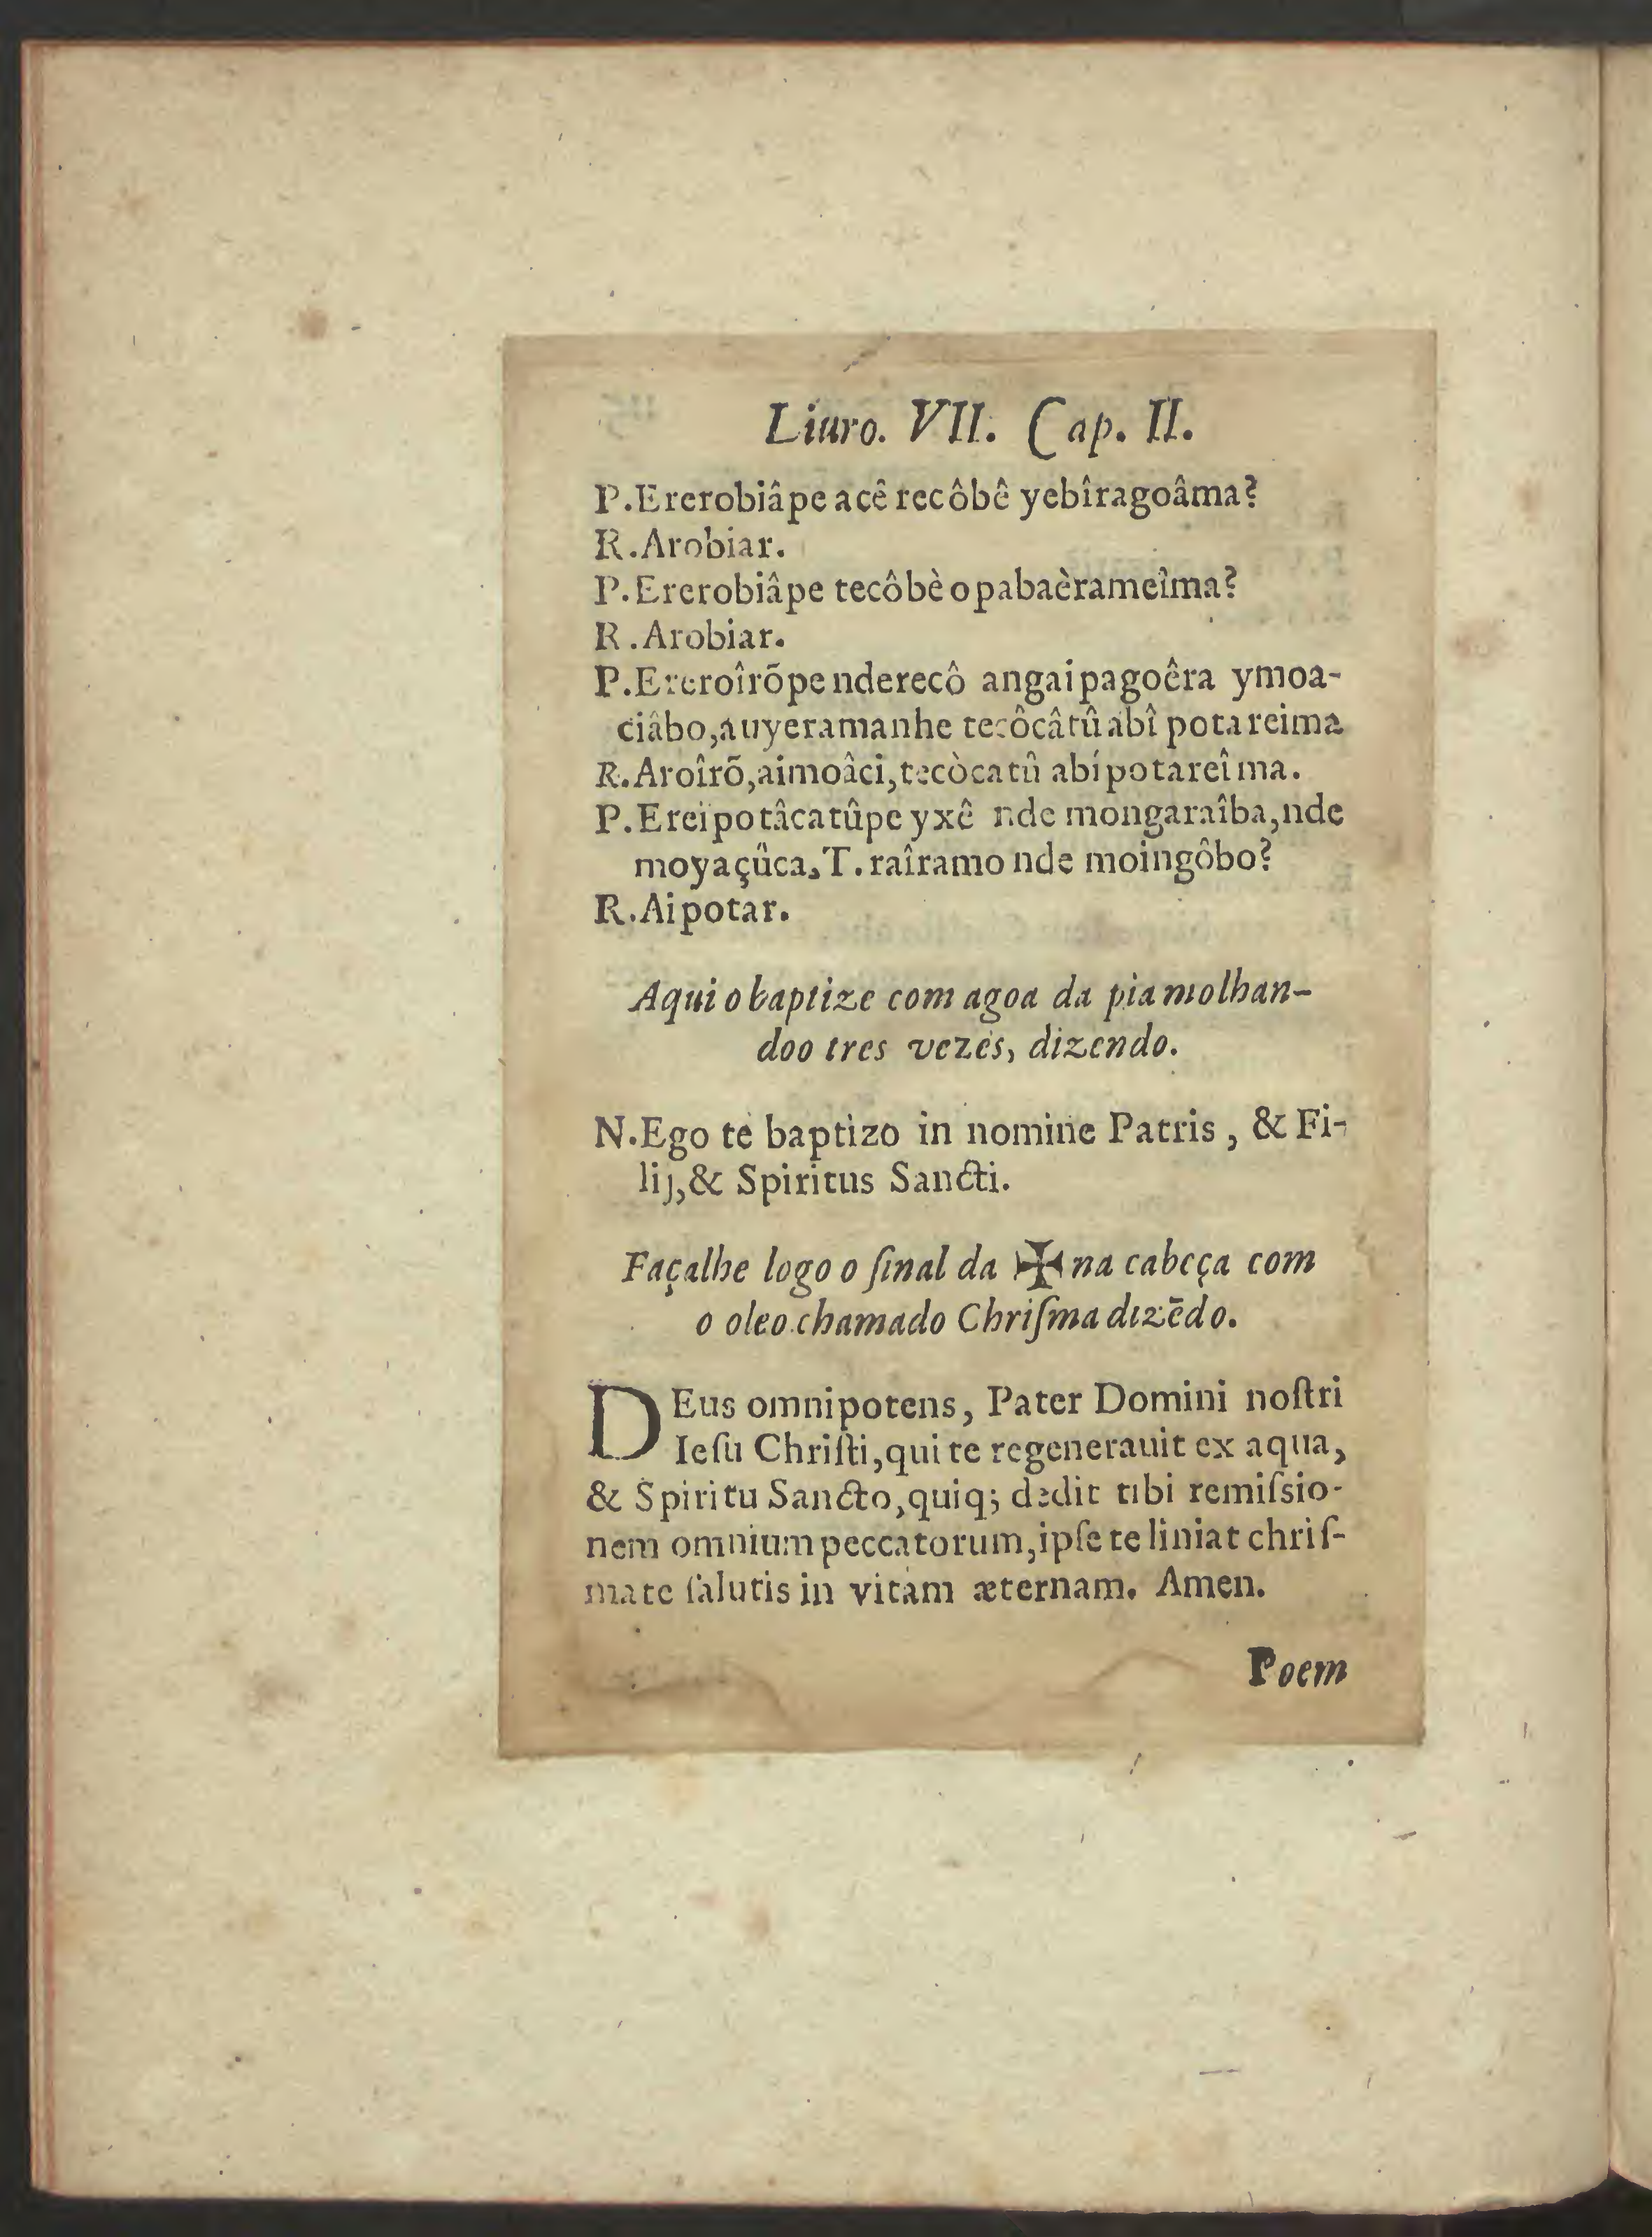 Liuro. VII. Cap. II.
P.Ererobiâpe acê recôbê yebîragoâma?
R.Arobiar.
P.Ererobiâpe tecôbè opabaèrameîma?
R.Arobiar.
P.Ereroîrõpe nderecô angaipagoêra ymoa-
ciâbo,auyeramanhe tecôcâtûabî potareima
R.Aroîrõ,aimoâci,tecòcatû abípotareîma.
P.Ereipotâcatûpe yxê nde mongaraîba,nde
moyaçûca,T.raîramo nde moingôbo?
R.Aipotar.
Aqui o baptize com agoa da pia molhan-
doo tres vezes, dizendo.
N.Ego te baptizo in nomine Patris, & Fi-
lij,& Spiritus Sancti.
Façalhe logo o ſinal da ✠ na cabeça com
o oleo chamado Chriſma dizẽdo.
DEus omnipotens, Pater Domini noſtri
Ieſu Chriſti,qui te regenerauit ex aqua,
& Spiritu Sancto,quiq; dedit tibi remiſsio-
nem omnium peccatorum,ipſe te liniat chriſ-
mate ſalutis in vitam æternam. Amen.
Poem